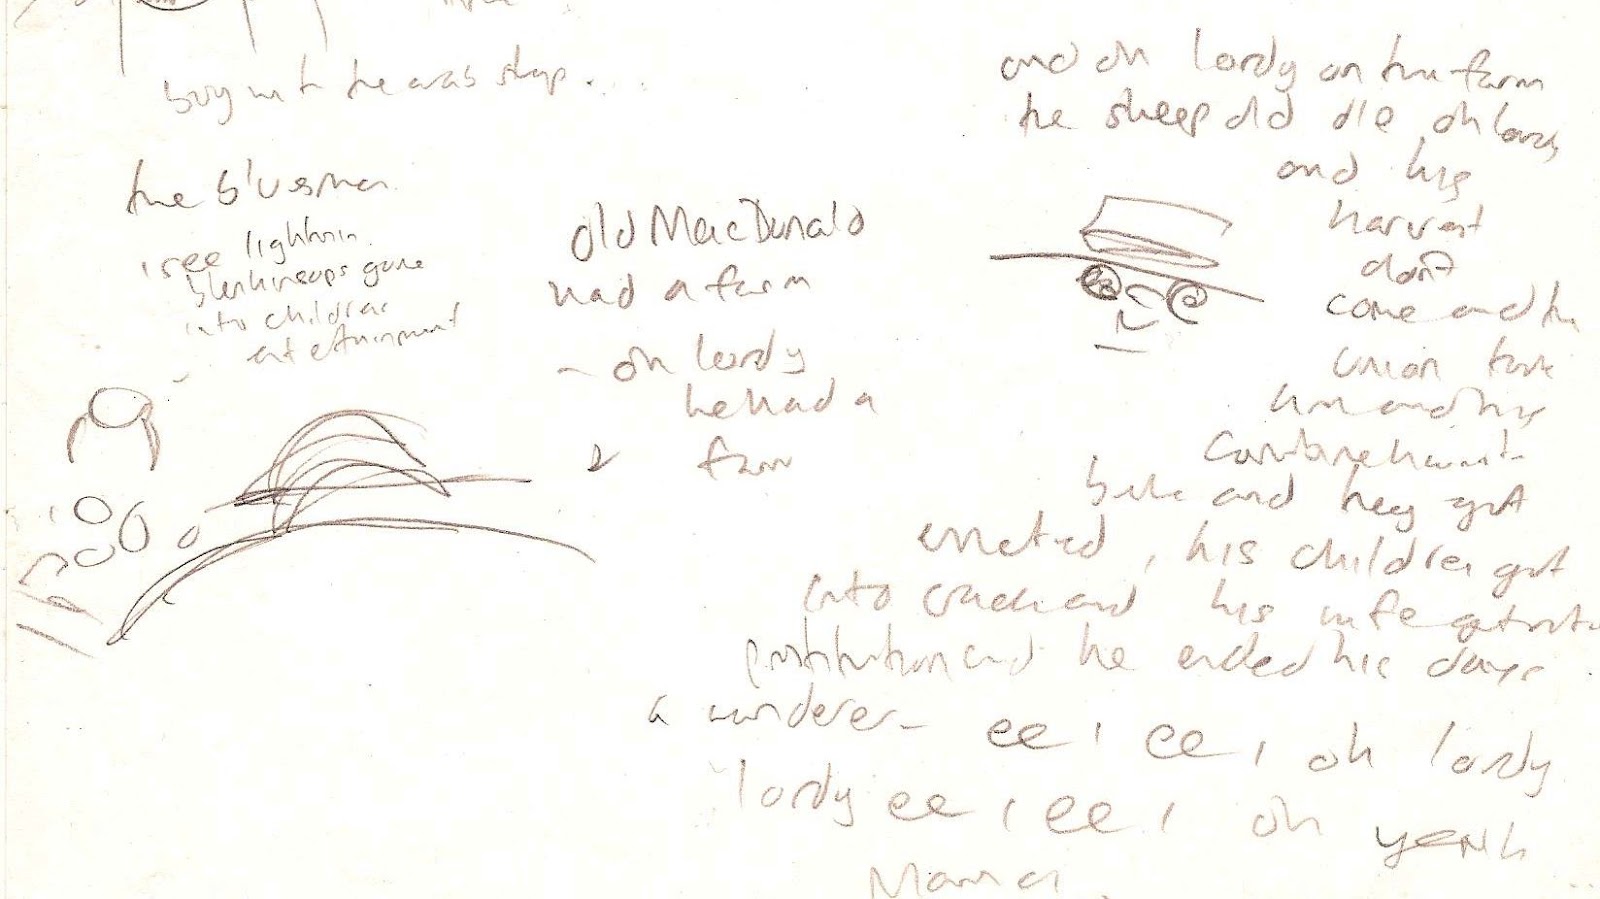 the bluesman
i see lightnin
gone
into children
entertainment
old MacDonald
had a farm
- oh lordy
he had a
farm
and oh lordy on the farm
the sheep did die oh lordy
and his
harvest
don't
come and the
union took
him and his
combine
and they got
evicted, his children got
into crack and his wife got into
prostitution and he ended his days
a wanderer - ee i ee i oh lordy
lordy ee i ee i oh yeah
Mama